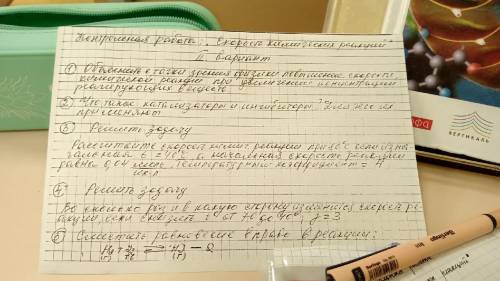 Контрольная работа: Скорость химических реакций
II вариант
① Объяснить с точки зрения физики повышение скорости
химической реакции при увеличении концентрации
реагирующих веществ?
② Что такое катализаторы и ингибиторы? Для чего их
применяют
③ Решить задачу
Рассчитайте скорость химич. реакции при 80° если
начальная t = 40°C а начальная скорость реакции
равна 0,04 Температурный коэффициент = 4
④ Решить задачу
Во сколько раз и в какую сторону изменится скорость ре
акции, если снизить t от 70 до 40° γ = 3
⑤ Сместить равновесие вправо в реакции:
H₂ + ⇄ HJ − Q
(г) (г)
ВЕРТИКАЛЬ
Berlingo